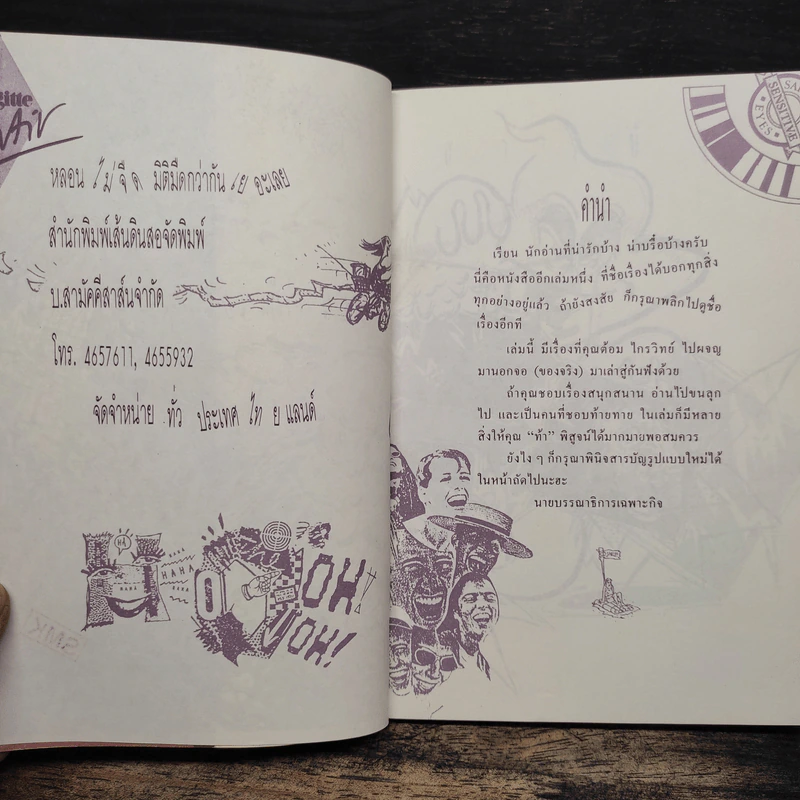 gitte
หลอน ไม่จืด มิติมืดกว่ากันเยอะเลย
สำนักพิมพ์เส้นดินสอจัดพิมพ์
บ.สามัคคีสาส์นจำกัด
โทร. 4657611, 4655932
จัดจำหน่าย ทั่ว ประเทศ ไท ย แลนด์
HA
HAHA
HAHA
OH!
WOH!
SMK
SENSITIVE
EYES
คำนำ
เรียน นักอ่านที่น่ารักบ้าง น่าบรื๋อบ้างครับ
นี่คือหนังสืออีกเล่มหนึ่ง ที่ชื่อเรื่องได้บอกทุกสิ่ง
ทุกอย่างอยู่แล้ว ถ้ายังสงสัย ก็กรุณาพลิกไปดูชื่อ
เรื่องอีกที
เล่มนี้ มีเรื่องที่คุณต้อม ไกรวิทย์ ไปผจญ
มานอกจอ (ของจริง) มาเล่าสู่กันฟังด้วย
ถ้าคุณชอบเรื่องสนุกสนาน อ่านไปขนลุก
ไป และเป็นคนที่ชอบท้าทาย ในเล่มก็มีหลาย
สิ่งให้คุณ “ท้า” พิสูจน์ได้มากมายพอสมควร
ยังไง ๆ ก็กรุณาพินิจสารบัญรูปแบบใหม่ได้
ในหน้าถัดไปนะฮะ
นายบรรณาธิการเฉพาะกิจ